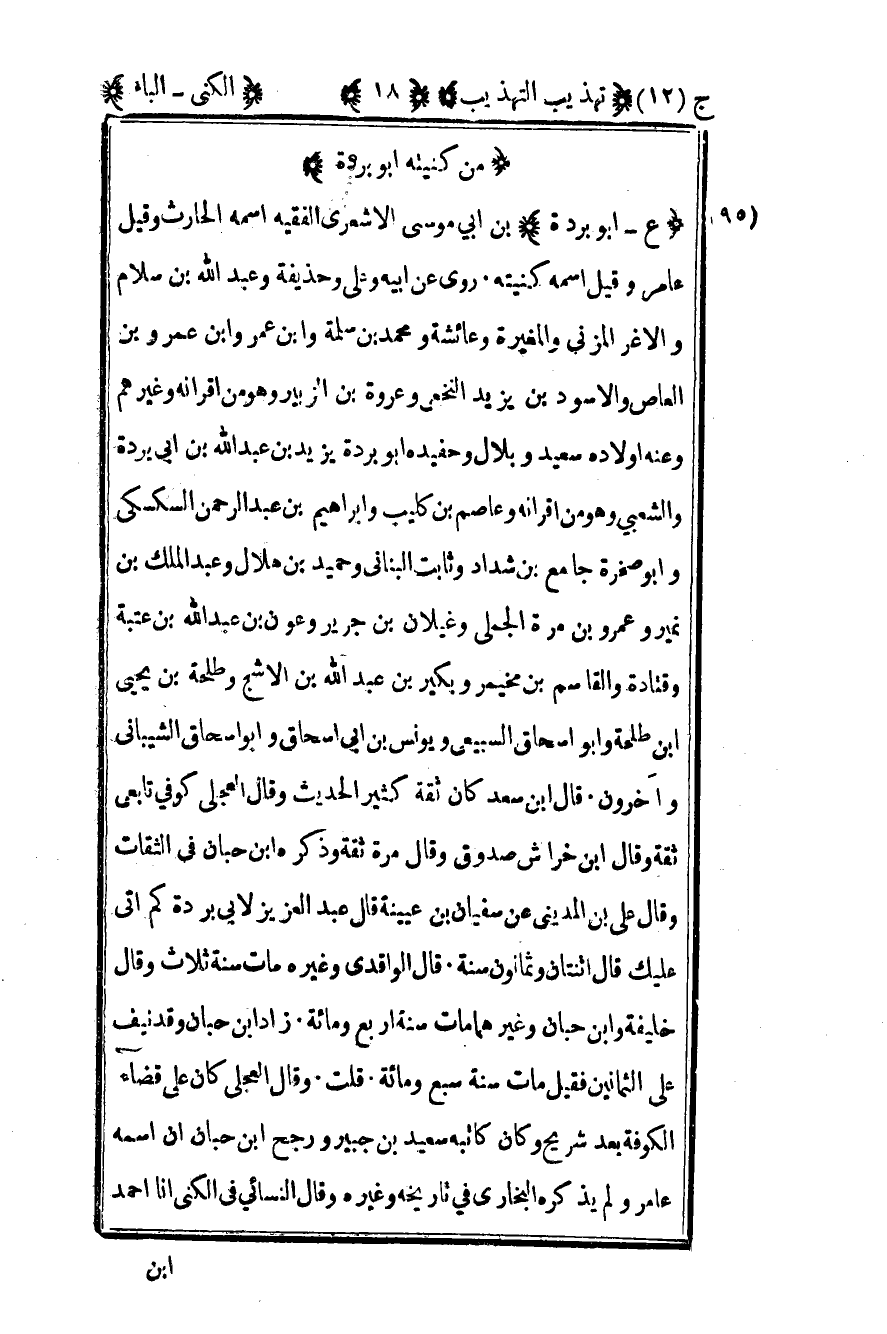 ج (١٢) ﴿ تهذيب التهذيب ﴾ ﴿ ١٨ ﴾ ﴿ الكنى - الباء ﴾
﴿ من كنيته ابو بردة ﴾
(٩٥ ﴿ ع - ابو بردة ﴾ بن ابي موسى الاشعرى الفقيه اسمه الحارث وقيل
عامر وقيل اسمه كنيته · روى عن ابيه وعلى وحذيفة وعبد الله بن سلام
والاغر المزني والمغيرة وعائشة ومحمد بن سلمة وابن عمر وابن عمرو بن
العاص والاسود بن يزيد النخعى وعروة بن الزبير وهو من اقرانه وغيرهم
وعنه اولاده سعيد وبلال وحفيده ابو بردة يزيد بن عبد الله بن ابي بردة
والشعبي وهو من اقرانه وعاصم بن كليب وابراهيم بن عبد الرحمن السكسكى
وابو صخرة جامع بن شداد وثابت البنانى وحميد بن هلال وعبد الملك بن
نمير وعمرو بن مرة الجملى وغيلان بن جرير وعون بن عبد الله بن عتبة
وقتادة والقاسم بن مخيمر وبكير بن عبد الله بن الاشج وطلحة بن يحيى
ابن طلحة وابو اسحاق السبيعى ويونس بن ابي اسحاق وابو اسحاق الشيبانى
وآخرون · قال ابن سعد كان ثقة كثير الحديث وقال العجلى كوفي تابعى
ثقة وقال ابن خراش صدوق وقال مرة ثقة وذكره ابن حبان فى الثقات
وقال على بن المدينى عن سفيان بن عيينة قال عبد العزيز لابي بردة كم اتى
عليك قال اثنتان وثمانون سنة · قال الواقدى وغيره مات سنة ثلاث وقال
خليفة وابن حبان وغيرهما مات سنة اربع ومائة · زاد ابن حبان وقد نيف
على الثمانين فقيل مات سنة سبع ومائة · قلت · وقال العجلى كان على قضاء
الكوفة بعد شريح وكان كاتبه سعيد بن جبير ورجح ابن حبان ان اسمه
عامر ولم يذكره البخارى في تاريخه وغيره وقال النسائي فى الكنى انا احمد
ابن